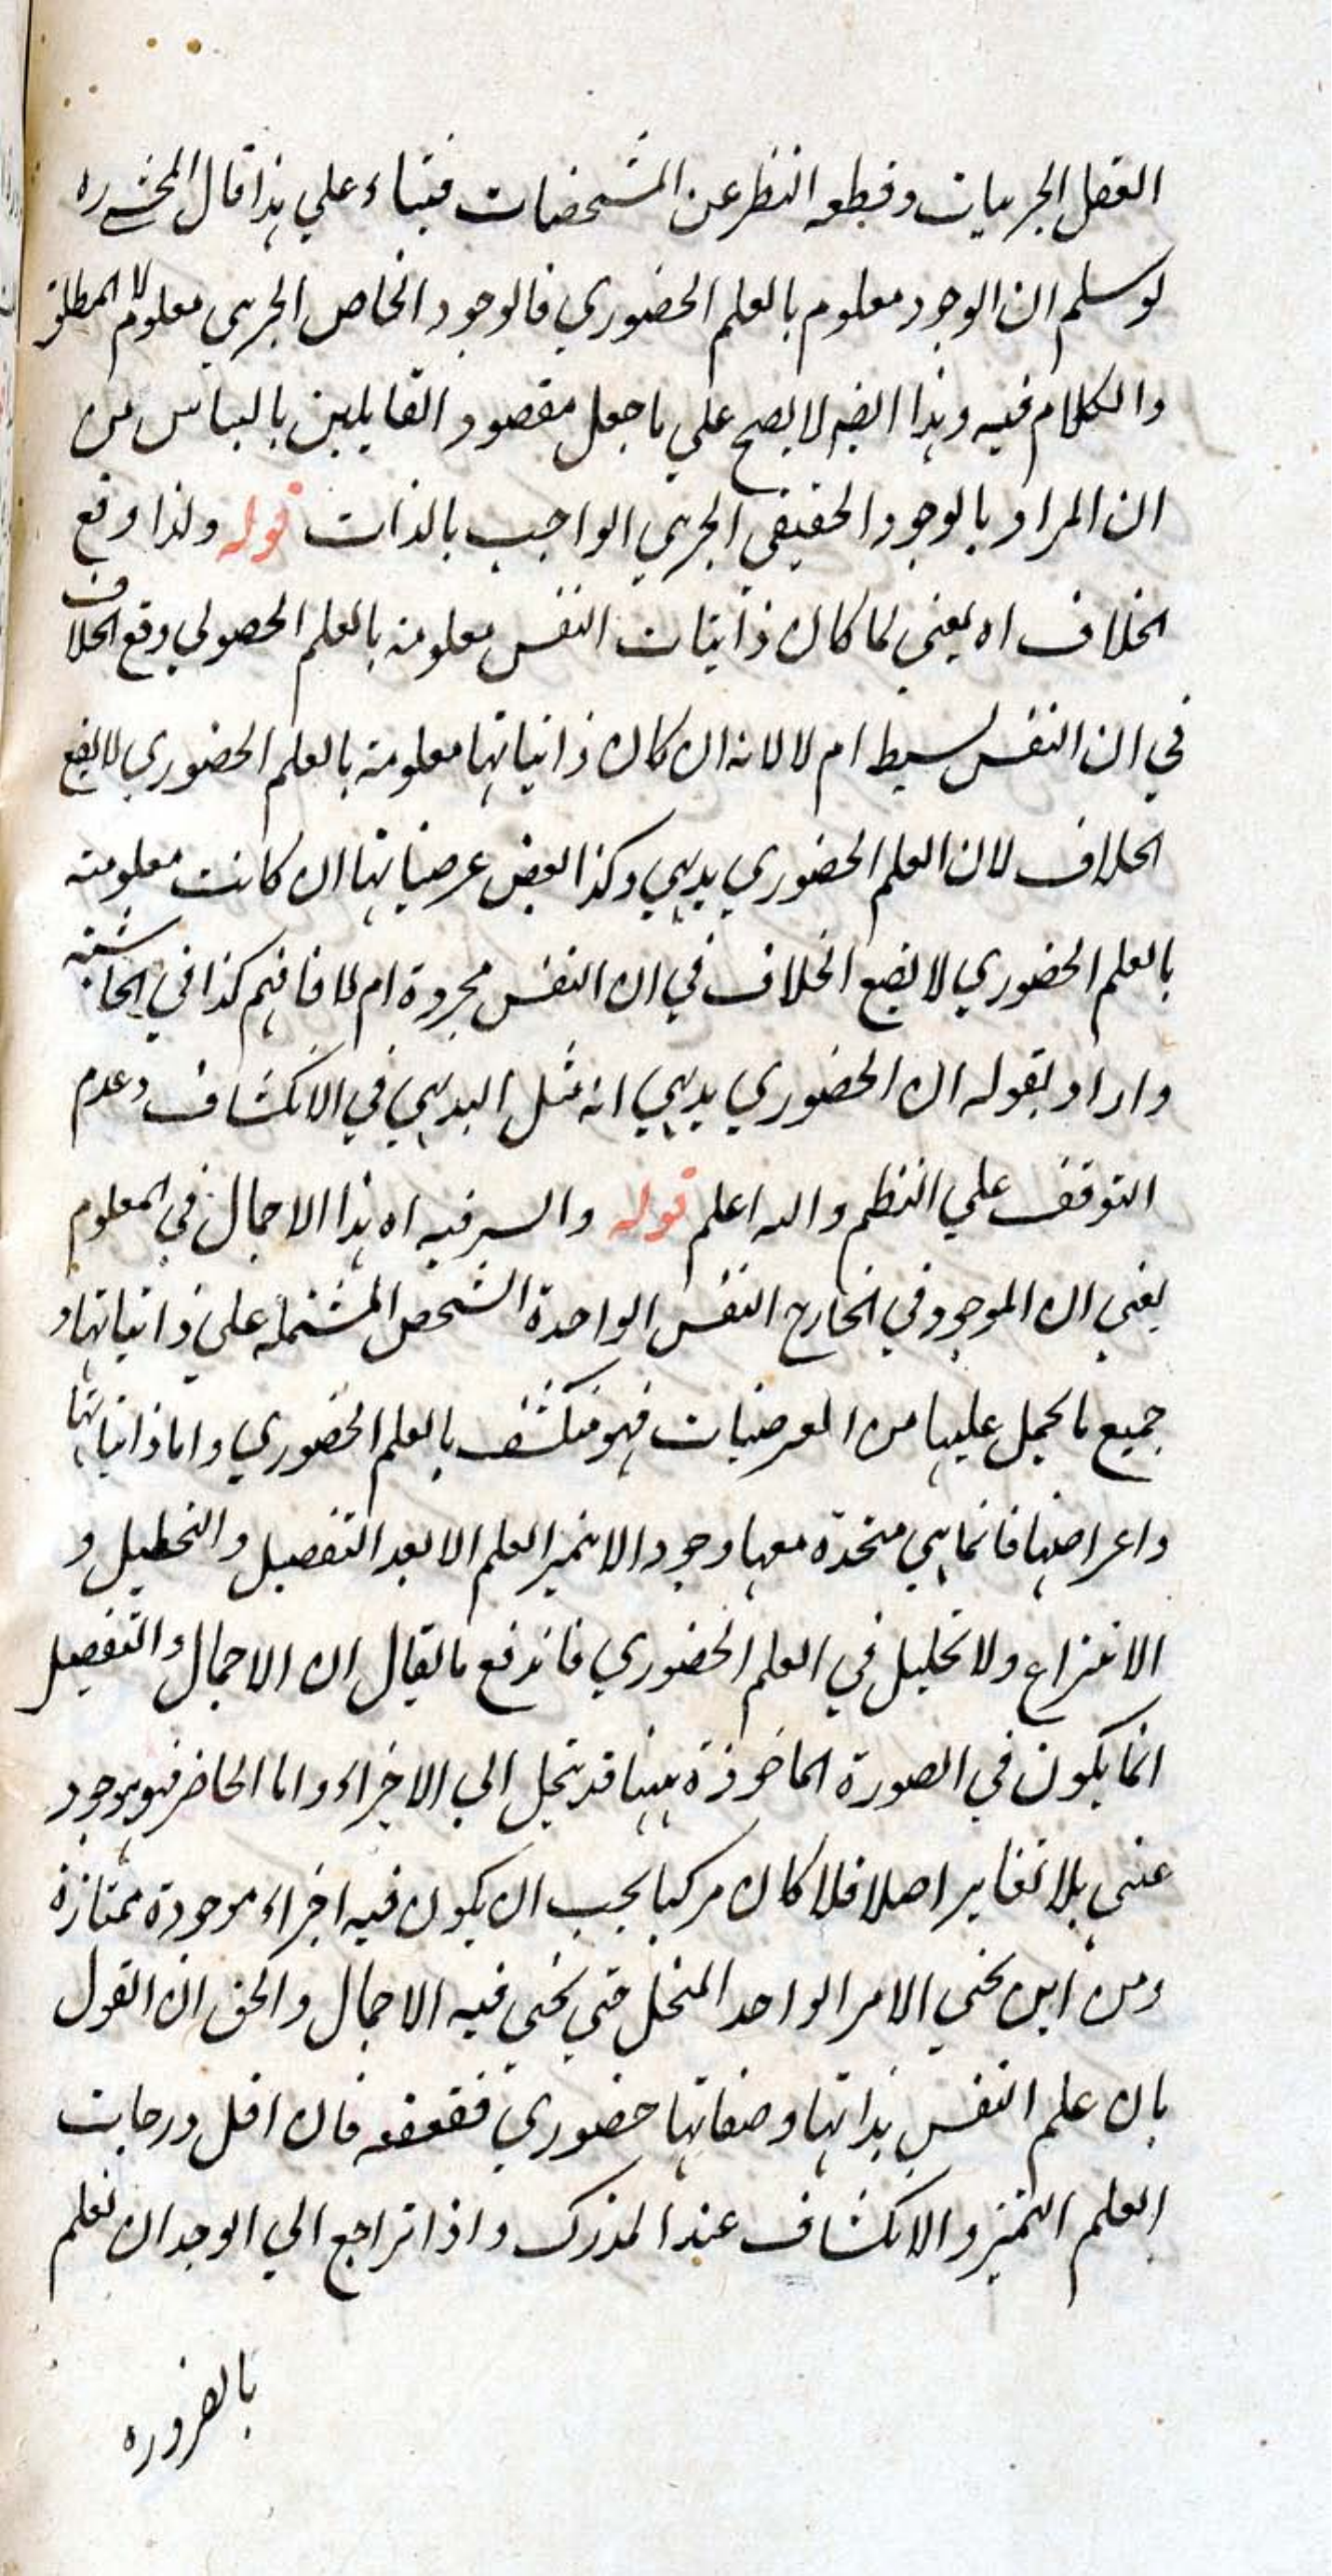 العقل الجزئيات وقطعه النظر عن المشخصات فبناء علي هذا قال المحشي ره
لو سلم ان الوجود معلوم بالعلم الحضوري فالوجود الخاص الجزئي معلوم لا المطلق
والكلام فيه وهذا ايضا لا يصح علي ما جعل مقصود القايلين بالباس من
ان المراد بالوجود الحقيقي الجزئي الواجب بالذات قوله ولذا وقع
الخلاف اه يعني لما كان ذاتيات النفس معلومة بالعلم الحصولي وقع الخلاف
في ان النفس بسيط ام لا لانه ان كان ذاتياتها معلومة بالعلم الحضوري لا يقع
الخلاف لان العلم الحضوري بديهي وكذا بعض عرضياتها ان كانت معلومة
بالعلم الحضوري لا يقع الخلاف في ان النفس مجردة ام لا فافهم كذا في الحاشية
واراد بقوله ان الحضوري بديهي انه مثل البديهي في الانكشاف وعدم
التوقف علي النظم والله اعلم قوله والسر فيه اه هذا الاجمال في المعلوم
يعني ان الموجود في الخارج النفس الواحدة الشخص المشتملة علي ذاتياتها و
جميع ما يحمل عليها من العرضيات فهو منكشف بالعلم الحضوري واما ذاتياتها
واعراضها فانما هي متحدة معها وجودا لا يتميز العلم الا بعد التفصيل والتحليل و
الانتزاع ولا تحليل في العلم الحضوري فاندفع ما يقال ان الاجمال والتفصيل
انما يكون في الصورة الماخوذة بينا قد ينحل الي الاجزاء واما الحاضر فهو موجود
عيني بلا تغاير اصلا فلا كان مركبا يجب ان يكون فيه اجزاء موجودة ممتازة
ومن اين يجي الامر الواحد المنحل حتي يجي فيه الاجمال والحق ان القول
بان علم النفس بذاتها وصفاتها حضوري فقعقعه فان اقل درجات
العلم التميز والانكشاف عند المدرك واذا تراجع الي الوجدان نعلم
بالضروره